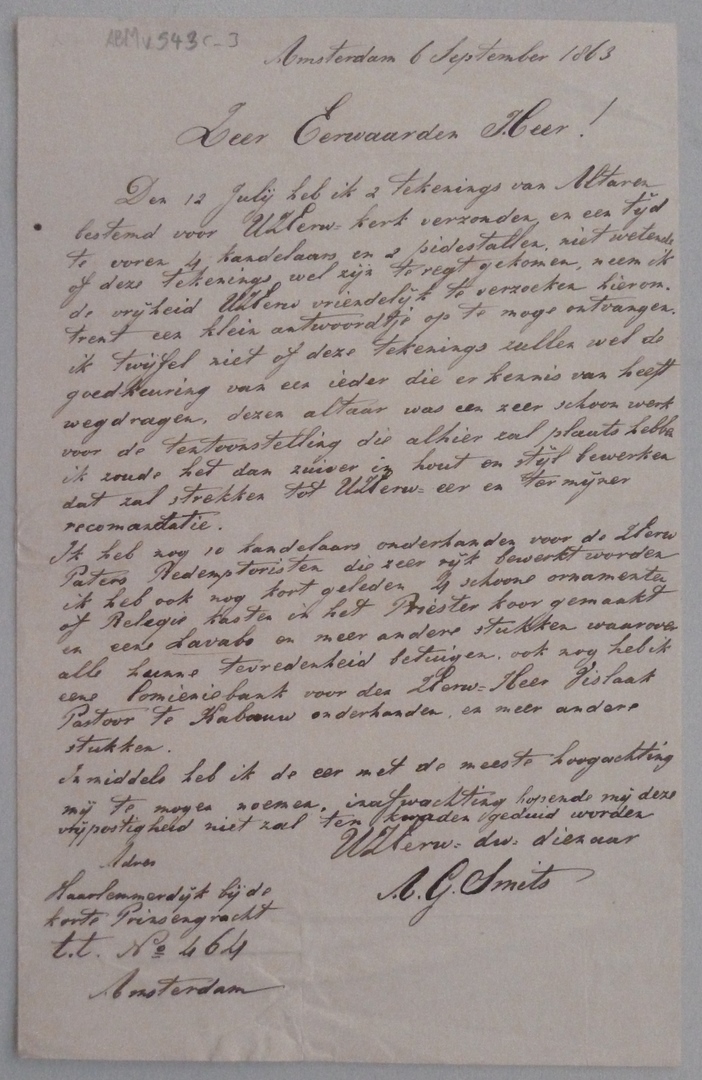 ABM v 543 c-3
Amsterdam 6 September 1863
Zeer Eerwaarden Heer!
Den 12 Julij heb ik 2 tekenings van Altaren
bestemd voor UZEerw= kerk verzonden, en een tijd
te voren 4 kandelaars en 2 pidestallen, niet wetende
of deze tekenings wel zijn teregt gekomen, neem ik
de vrijheid UZEerw vriendelijk te verzoeken hierom-
trent een klein antwoordtje op te moge ontvangen.
ik twijfel niet of deze tekenings zullen wel de
goedkeuring van een ieder die er kennis van heeft
wegdragen, dezen altaar was een zeer schoon werk
voor de tentoonstelling die alhier zal plaats hebben
ik zoude het dan zuiver in hout en stijl bewerken
dat zal strekken tot UZEerw= eer en ter mijner
recomandatie.
Ik heb nog 10 kandelaars onderhanden voor de ZEerw
Paters Redemptoristen die zeer rijk bewerkt worden
ik heb ook nog kort geleden 4 schoone ornamenten
of Relegie kasten in het Priester koor gemaakt
en eene Lavabo en meer andere stukken waarover
alle hunne tevredenheid betuigen. ook nog heb ik
eene Comieniebank voor den ZEerw= Heer Vislaak
Pastoor te Kabauw onderhanden, en meer andere
stukken.
Inmiddels heb ik de eer met de meeste hoogachting
mij te mogen noemen, inafwachting hopende mij deze
vrijpostigheid niet zal ten kwaden geduid worden
UZEerw= dw= dienaar
A. G. Smits
Adres
Haarlemmerdijk bij de
korte Prinsengracht
t.t. No 464
Amsterdam